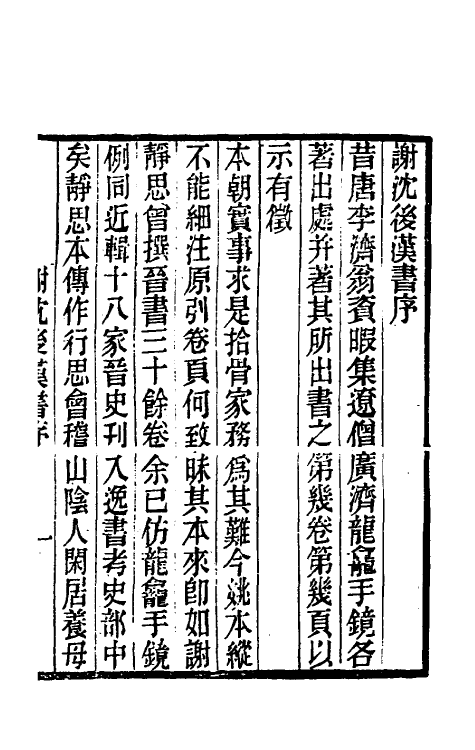 謝沈後漢書序
昔唐李濟翁資暇集遼僧廣濟龍龕手鏡各
著出處并著其所出書之第幾卷第幾頁以
示有徵
本朝實事求是拾骨家務爲其難今姚本縱
不能細注原引卷頁何致昧其本來卽如謝
靜思曾撰晉書三十餘卷余已仿龍龕手鏡
例同近輯十八家晉史刊入逸書考史部中
矣靜思本傳作行思會稽山陰人閑居養母
謝沈後漢書序 一